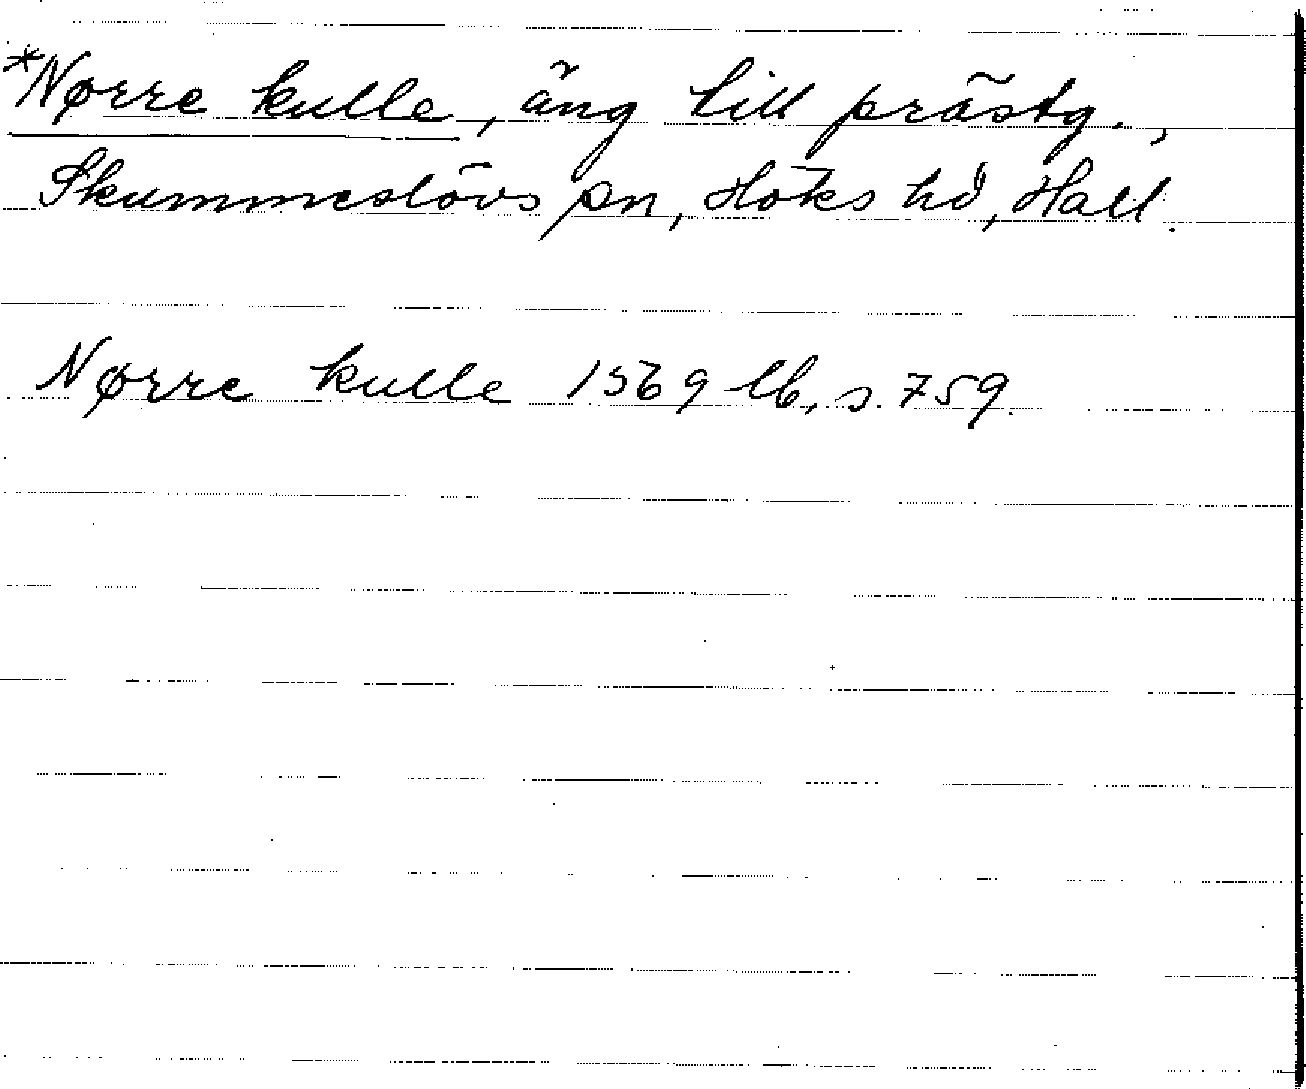 *Nørre kulle, äng till prästg.,
Skummeslövs sn, Höks hd, Hall.
Nørre kulle 1569 lb, s. 759.